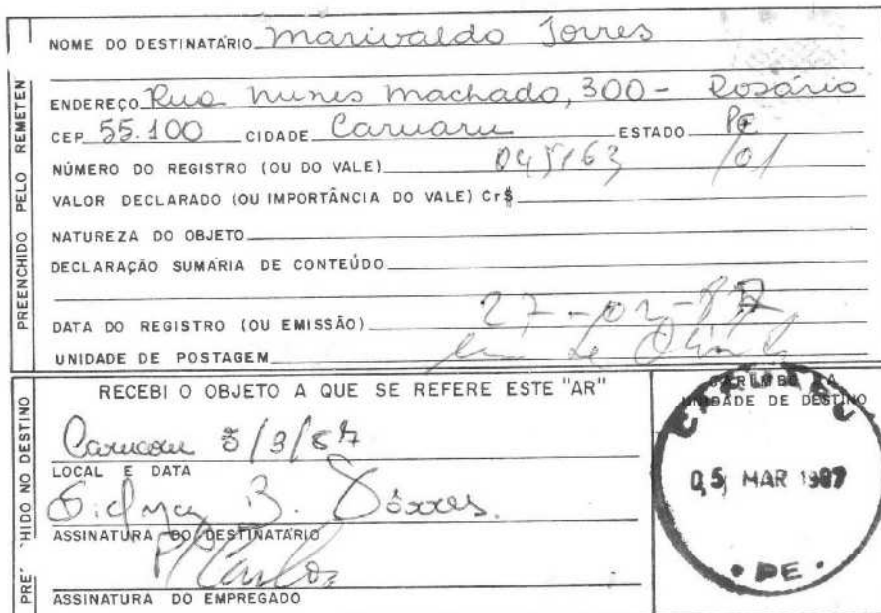 NOME DO DESTINATÁRIO Marivaldo Torres
ENDEREÇO Rua Nunes Machado, 300 - Rosário
CEP 55.100 CIDADE Caruaru ESTADO PE
NÚMERO DO REGISTRO (OU DO VALE) 045163 /01
VALOR DECLARADO (OU IMPORTÂNCIA DO VALE) Cr$
NATUREZA DO OBJETO
DECLARAÇÃO SUMÁRIA DE CONTEÚDO
DATA DO REGISTRO (OU EMISSÃO) 27-02-87
UNIDADE DE POSTAGEM
PREENCHIDO PELO REMETEN
RECEBI O OBJETO A QUE SE REFERE ESTE "AR"
Caruaru 5/3/87
LOCAL E DATA
B. Tôrres.
ASSINATURA DO DESTINATÁRIO
Carlos
ASSINATURA DO EMPREGADO
PRE HIDO NO DESTINO
CARIMBO DA
UNIDADE DE DESTINO
05 MAR 1987
PE